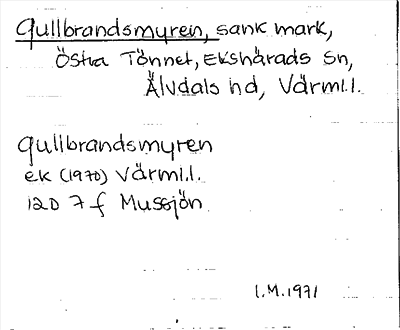 Gullbrandsmyren, sank mark,
Östra Tönnet, Ekshärads sn,
Älvdals hd, Värml.l.
Gullbrandsmyren
ek (1970) Värml.l.
12D 7 f Mussjön
I.M.1971